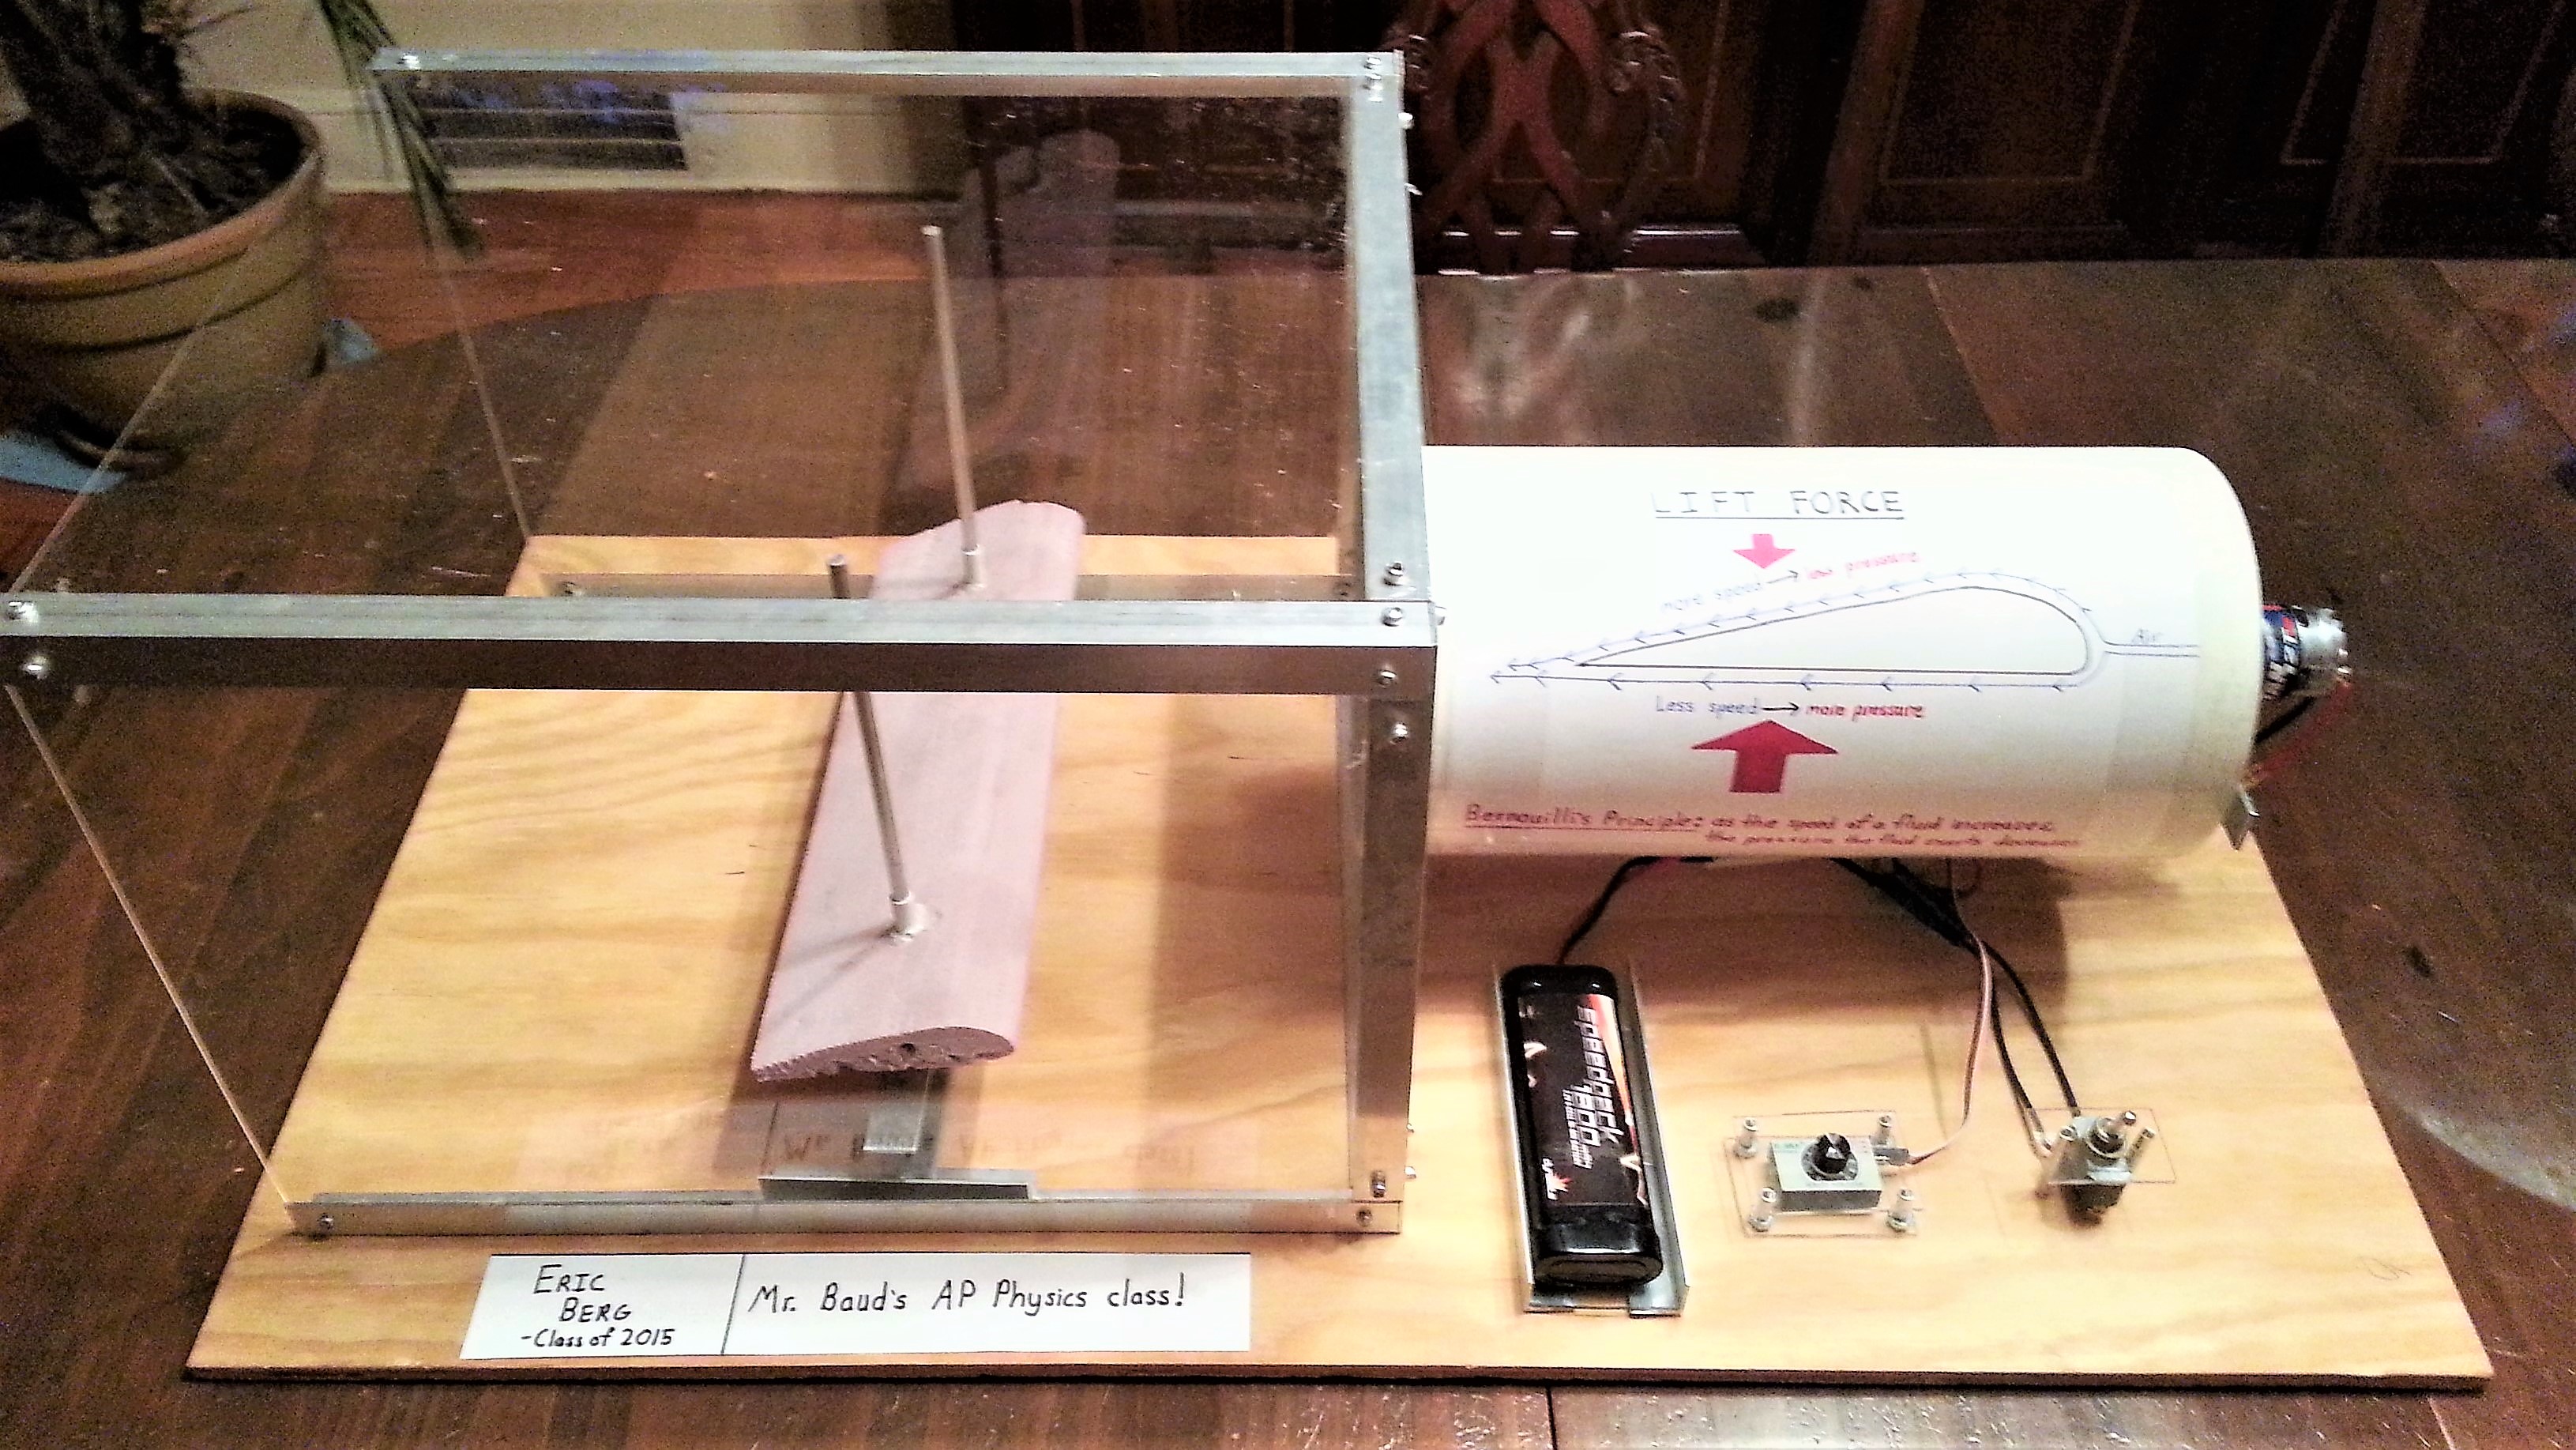 LIFT FORCE
more speed → less pressure
Air
Less speed → more pressure
Bernouilli's Principle: as the speed of a fluid increases,
the pressure the fluid exerts decreases
speedpack
1800
ERIC
BERG
-Class of 2015
Mr. Baud's AP Physics class!